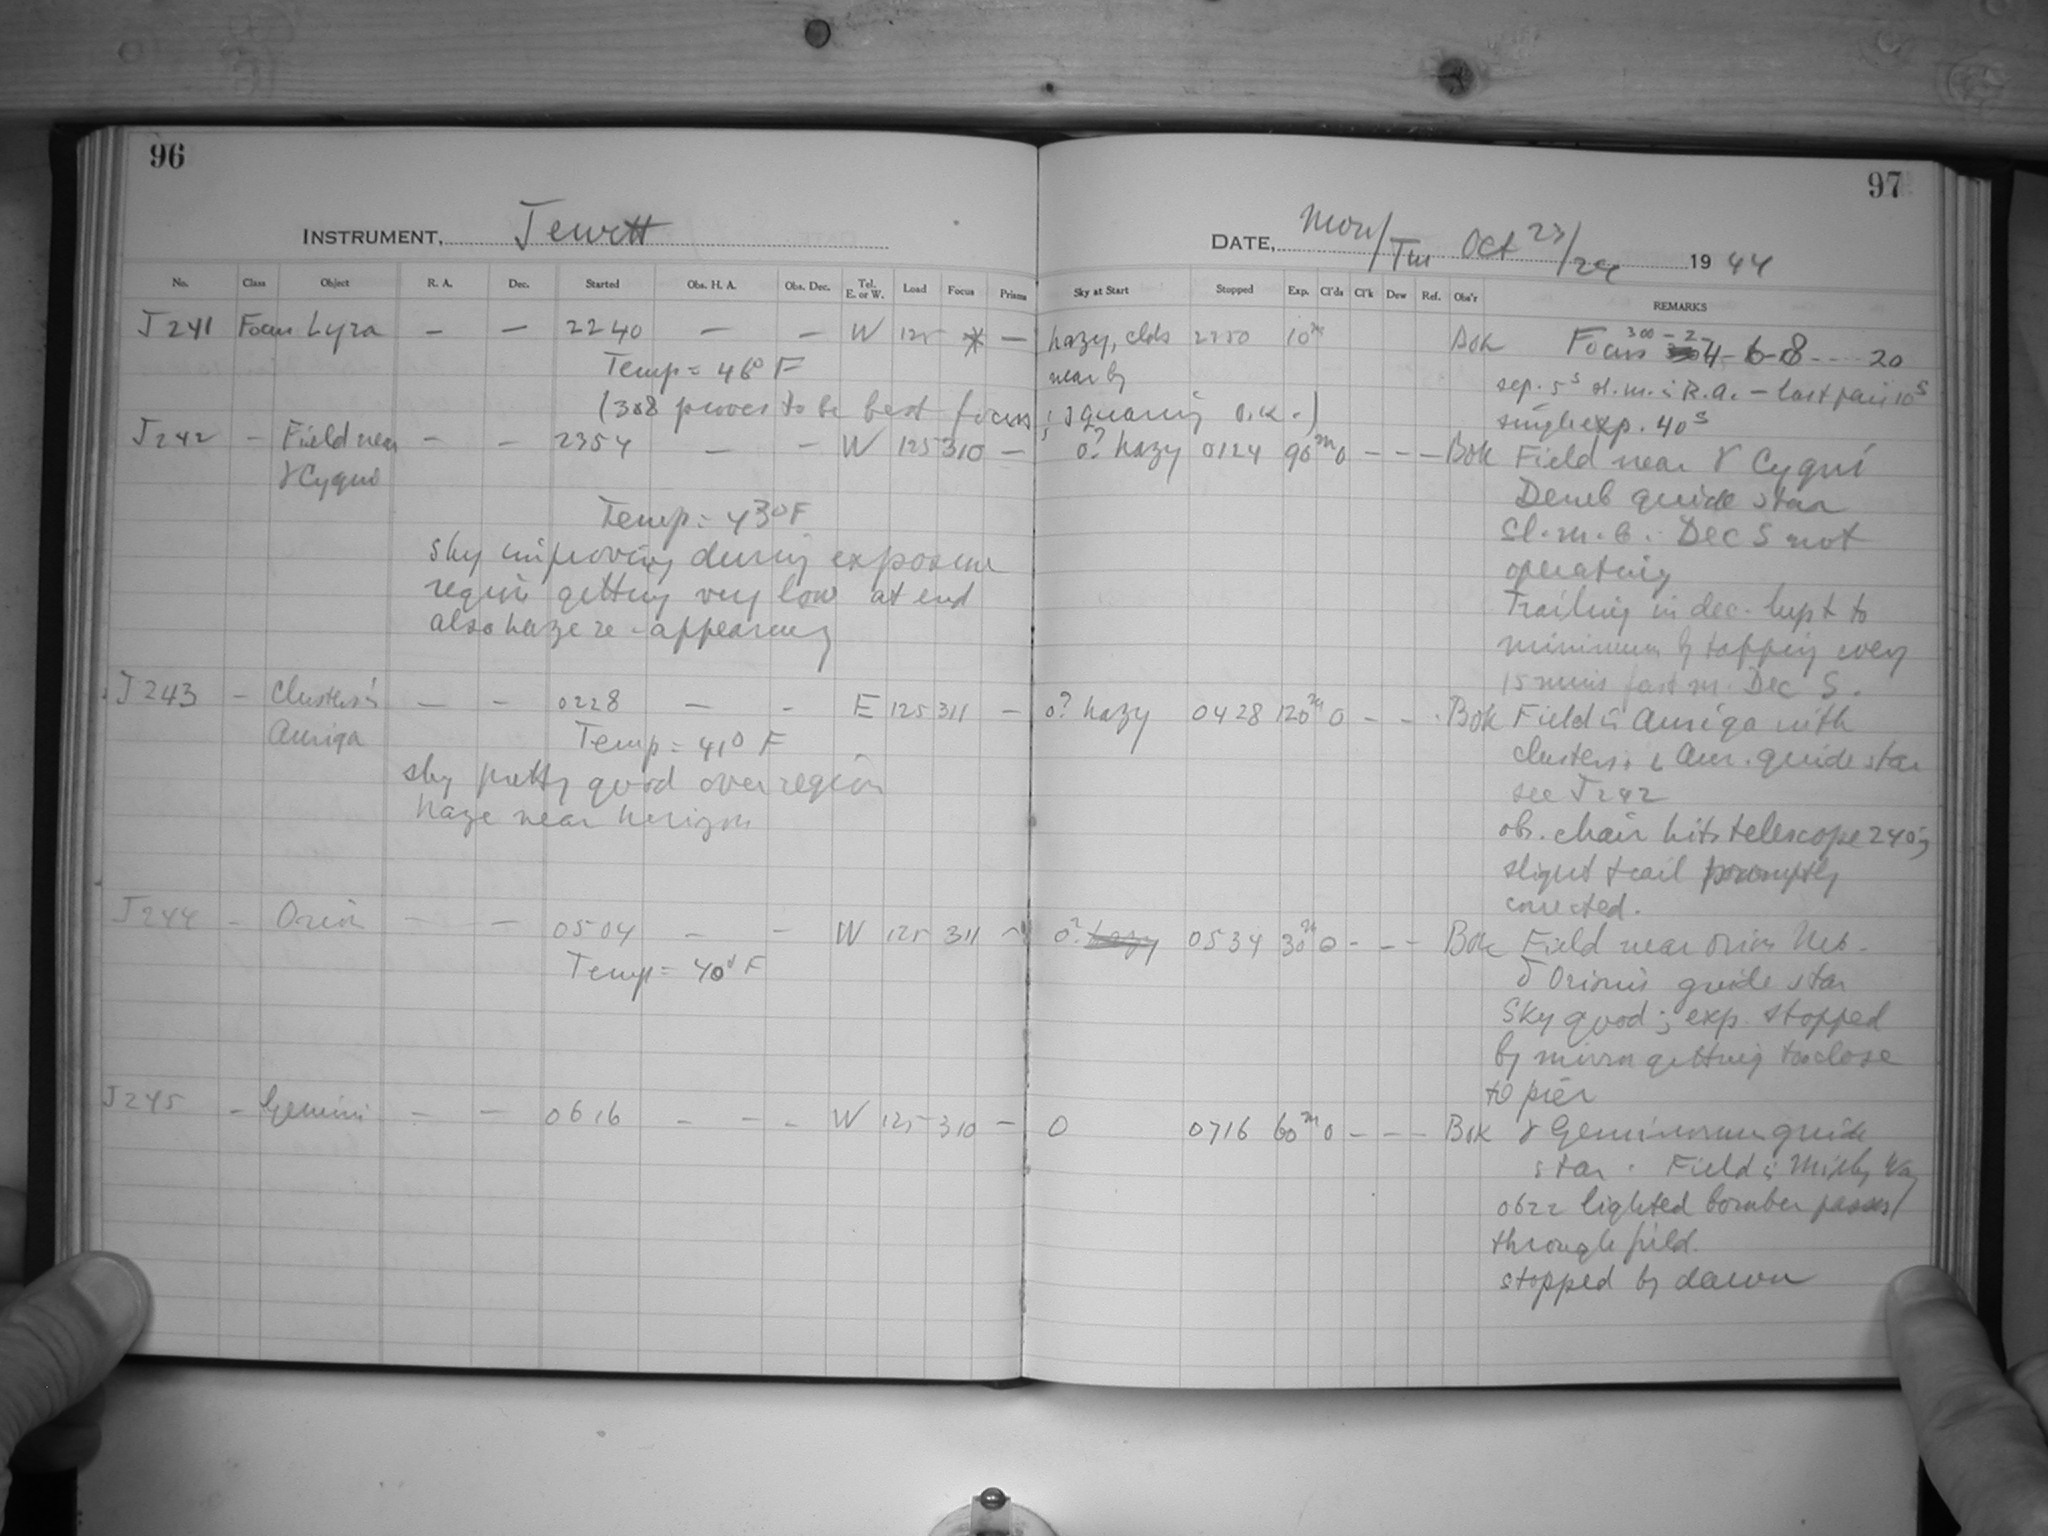 96
INSTRUMENT, Jewett
No. Class Object R. A. Dec. Started Obs. H. A. Obs. Dec. Tel. E. or W. Load Focus Prisms
J241 Focus Lyra — — 2240 — — W 125 * —
Temp = 46° F
(308 proves to be best focus
J242 — Field near — — 2354 — — W 125 310 —
γ Cygni
Temp = 43° F
sky improving during exposure
region getting very low at end
also haze re-appearing
J243 — Clusters in — — 0228 — — E 125 311 —
Auriga
Temp = 41° F
sky pretty good over region
haze near horizon
J244 — Orion — — 0504 — — W 125 311 —
Temp = 40° F
J245 — Gemini — — 0616 — — — W 125 310 —
97
DATE, Mon/Tu Oct 23/24 1944
Sky at Start Stopped Exp. Cl'ds Cl'k Dew Ref. Obs'r REMARKS
hazy, clds 2250 10m Bok Focus 300-2-4-6-8---20
near by
sep. 5s sl.m. in R.A. — last pair 10s
; squaring O.K.)
single exp. 40s
0? hazy 0124 90m 0 - - - Bok Field near γ Cygni
Deneb guide star
Sl. m. Dec S not
operating
Trailing in dec. kept to
minimum by tapping every
15 mins fast m. Dec S.
0? hazy 0428 120m 0 - - - Bok Field in Auriga with
clusters; ι Aur. guide star
see J242
obs. chair hits telescope 240;
slight trail promptly
corrected.
0? hazy 0534 30m 0 - - - Bok Field near Orion Neb.
δ Orionis guide star
Sky good; exp. stopped
by mirror getting too close
to pier
0 0716 60m 0 - - - Bok γ Geminorum guide
star. Field in Milky Way
0622 lighted bomber passes
through field.
stopped by dawn